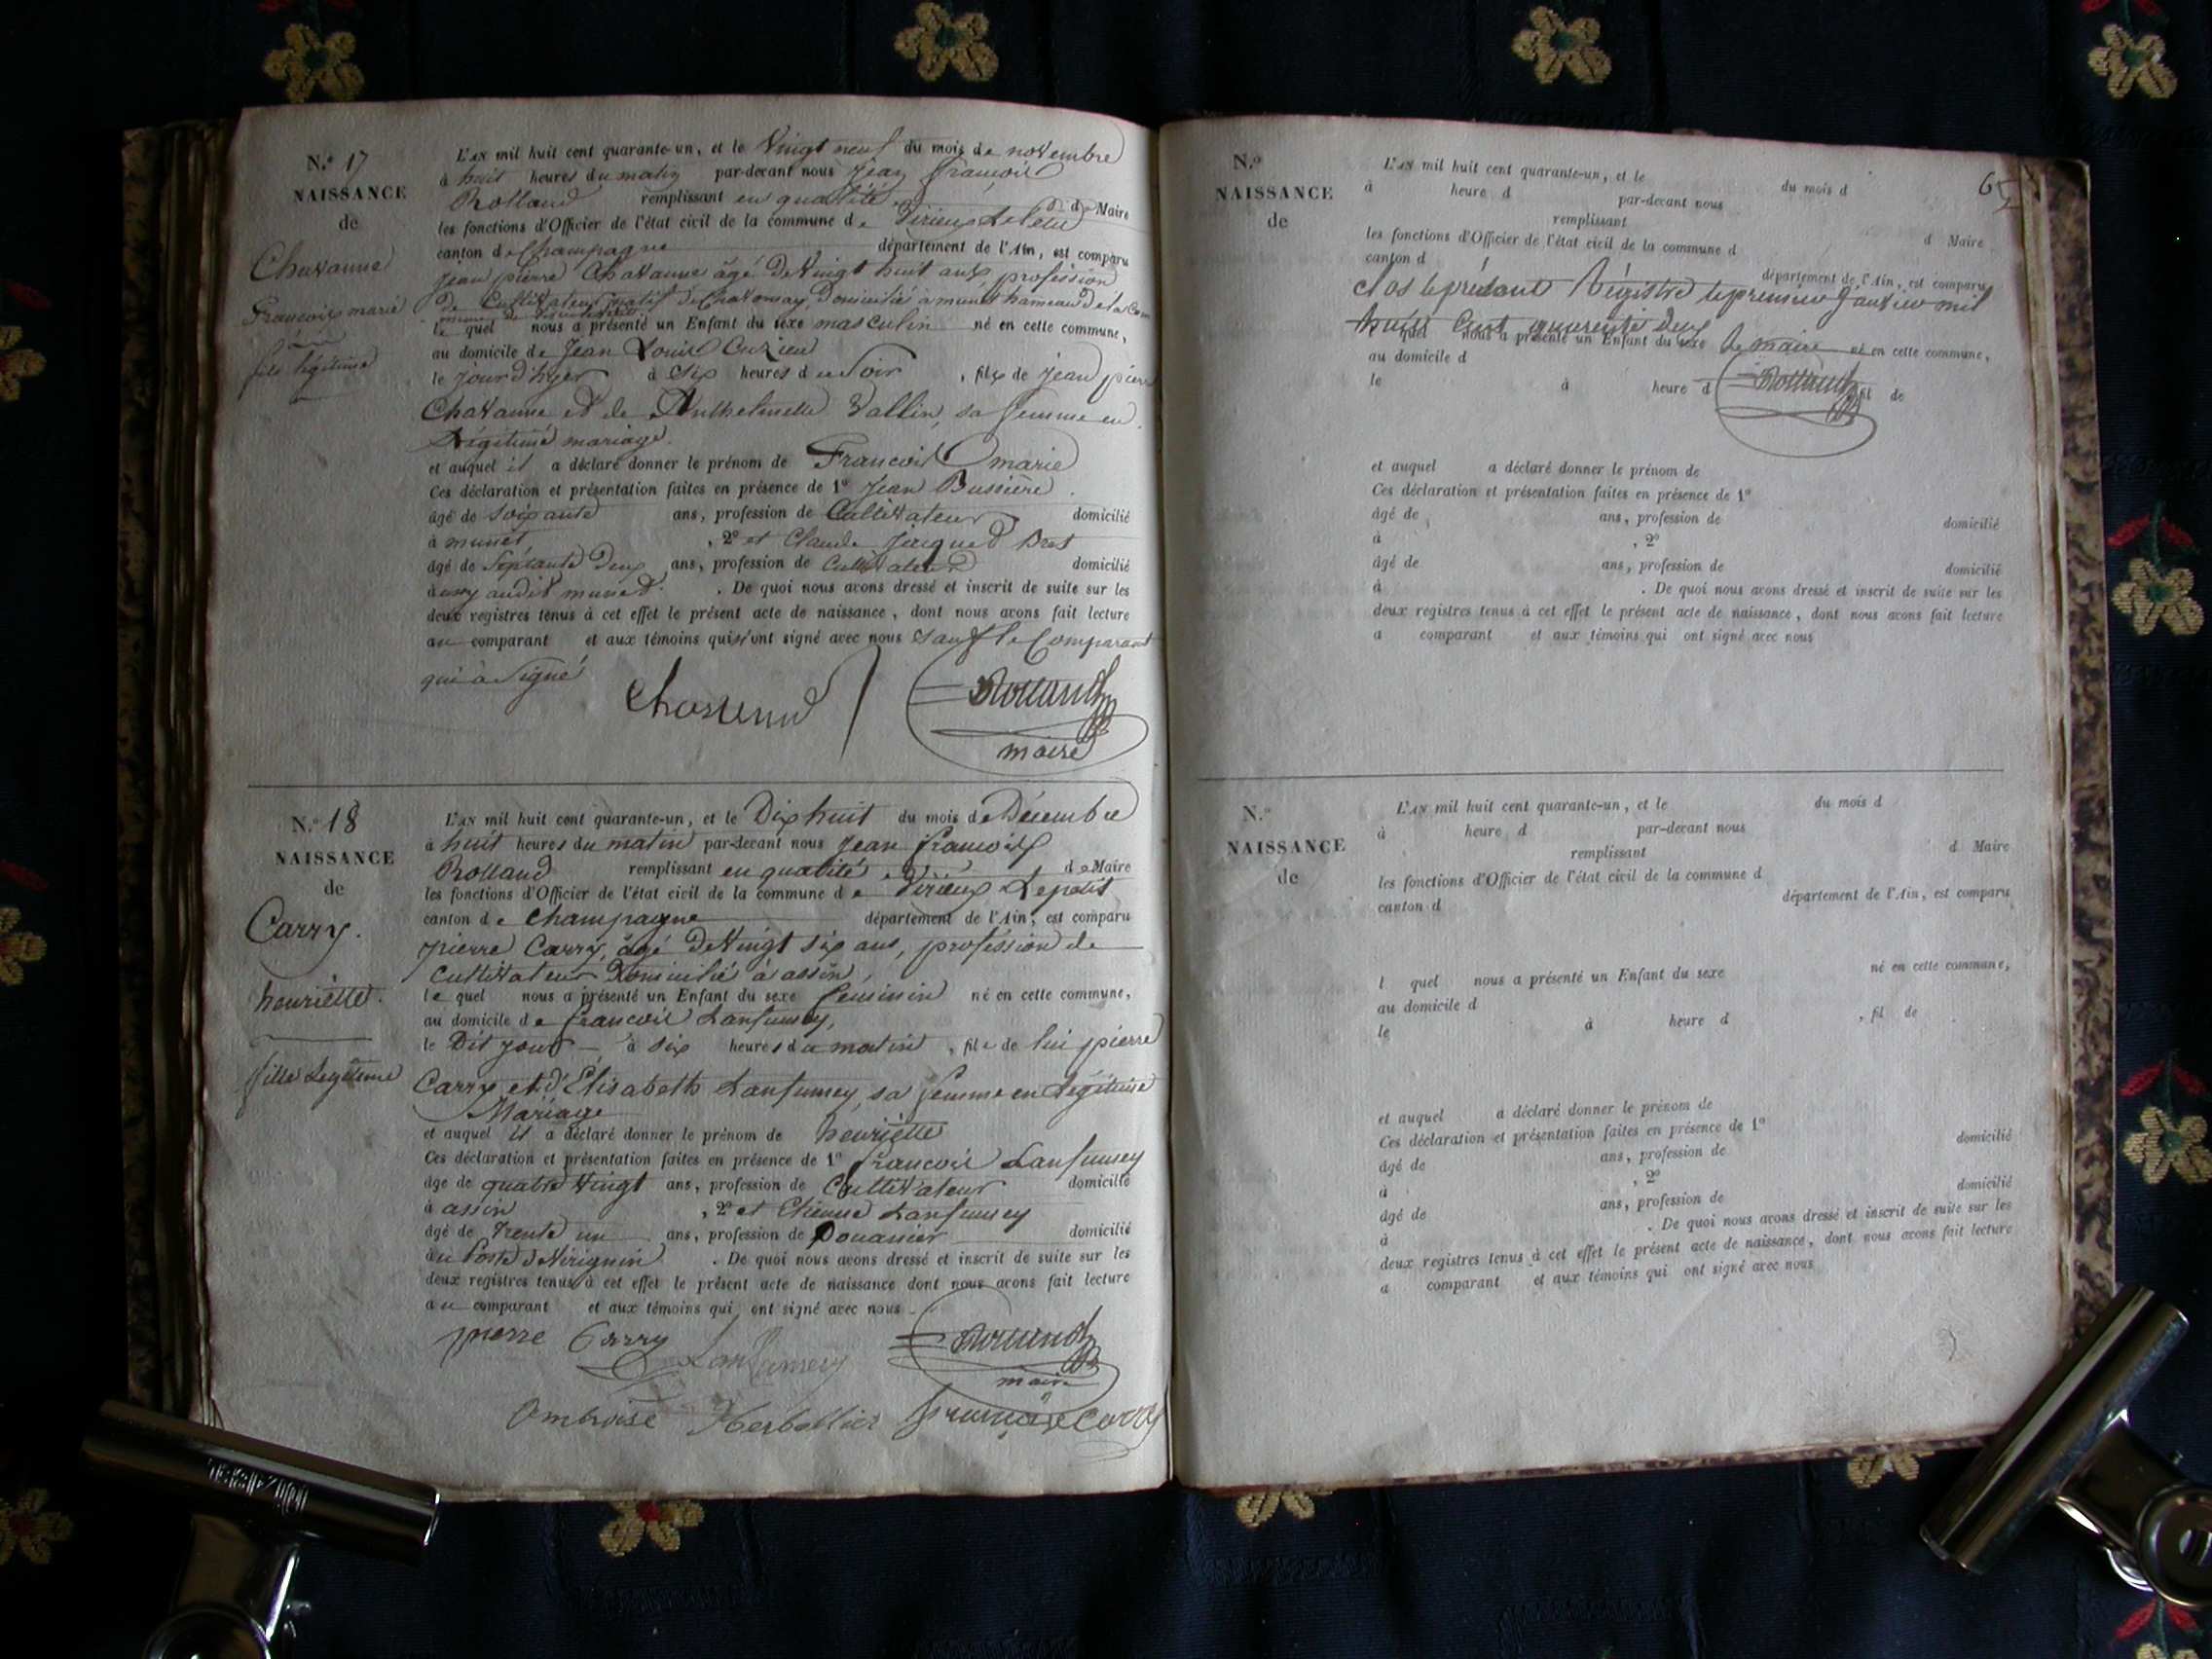 N.° 17
NAISSANCE
de
Chavanne
François marie
fils légitime
L'AN mil huit cent quarante-un, et le Vingt neuf du mois de novembre
à huit heures du matin par-devant nous Jean François
Rolland remplissant en qualité de Maire
les fonctions d'Officier de l'état civil de la commune de Virieux Le Petit
canton de Champagne département de l'Ain, est comparu
Jean pierre Chavanne âgé de Vingt huit ans, profession
de Cultivateur natif de Chavornay, Domicilié à munet hameau de la Com
le quel nous a présenté un Enfant du sexe masculin né en cette commune,
au domicile de Jean Louis Cuzieu
le jour d'hyer à Six heures du Soir, fils de Jean pierre
Chavanne et de Anthelmette Vallin, sa femme en
Légitime mariage.
et auquel il a déclaré donner le prénom de François marie
Ces déclaration et présentation faites en présence de 1° Jean Bussière
âgé de Soixante ans, profession de Cultivateur domicilié
à munet, 2° et Claude Jacques Bret
âgé de Septante Deux ans, profession de Cultivateur domicilié
audit munet. De quoi nous avons dressé et inscrit de suite sur les
deux registres tenus à cet effet le présent acte de naissance, dont nous avons fait lecture
au comparant et aux témoins qui n'ont signé avec nous Sauf le Comparant
qui à Signé
Rolland
maire
N.° 18
NAISSANCE
de
Carry.
henriette.
fille Legitime
L'AN mil huit cent quarante-un, et le Dix huit du mois de Décembre
à huit heures du matin par-devant nous Jean françois
Rolland remplissant en qualité de Maire
les fonctions d'Officier de l'état civil de la commune de Virieux Le petit
canton de Champagne département de l'Ain, est comparu
pierre Carry, âgé de Vingt six ans, profession de
Cultivateur Domicilié à assin,
le quel nous a présenté un Enfant du sexe feminin né en cette commune,
au domicile de françois Lanfumey,
le Dit jour à six heures du matin, file de lui pierre
Carry et d'Elisabeth Lanfumey, sa femme en Légitime
Mariage
et auquel il a déclaré donner le prénom de henriette
Ces déclaration et présentation faites en présence de 1° françois Lanfumey
âgé de quatre Vingt ans, profession de Cultivateur domicilié
à assin, 2° et Etienne Lanfumey
âgé de Trente un ans, profession de Douanier domicilié
au Poste de Virignin. De quoi nous avons dressé et inscrit de suite sur les
deux registres tenus à cet effet le présent acte de naissance dont nous avons fait lecture
au comparant et aux témoins qui ont signé avec nous
pierre Carry Rolland
Lanfumey maire
Ambroise Herbellier françois Carry
65
N.°
NAISSANCE
de
L'AN mil huit cent quarante-un, et le du mois d
à heure d par-devant nous
remplissant d Maire
les fonctions d'Officier de l'état civil de la commune d
canton d département de l'Ain, est comparu
Clos le présent Régistre le premier janvier mil
huit Cent quarente deux Le maire
quel nous a présenté un Enfant du sexe né en cette commune,
au domicile d Rolland
le à heure d fil de
et auquel a déclaré donner le prénom de
Ces déclaration et présentation faites en présence de 1°
âgé de ans, profession de domicilié
à , 2°
âgé de ans, profession de domicilié
à . De quoi nous avons dressé et inscrit de suite sur les
deux registres tenus à cet effet le présent acte de naissance, dont nous avons fait lecture
a comparant et aux témoins qui ont signé avec nous
N.°
NAISSANCE
de
L'AN mil huit cent quarante-un, et le du mois d
à heure d par-devant nous
remplissant d Maire
les fonctions d'Officier de l'état civil de la commune d
canton d département de l'Ain, est comparu
l quel nous a présenté un Enfant du sexe né en cette commune,
au domicile d
le à heure d , fil de
et auquel a déclaré donner le prénom de
Ces déclaration et présentation faites en présence de 1°
âgé de ans, profession de domicilié
à , 2°
âgé de ans, profession de domicilié
à . De quoi nous avons dressé et inscrit de suite sur les
deux registres tenus à cet effet le présent acte de naissance, dont nous avons fait lecture
a comparant et aux témoins qui ont signé avec nous